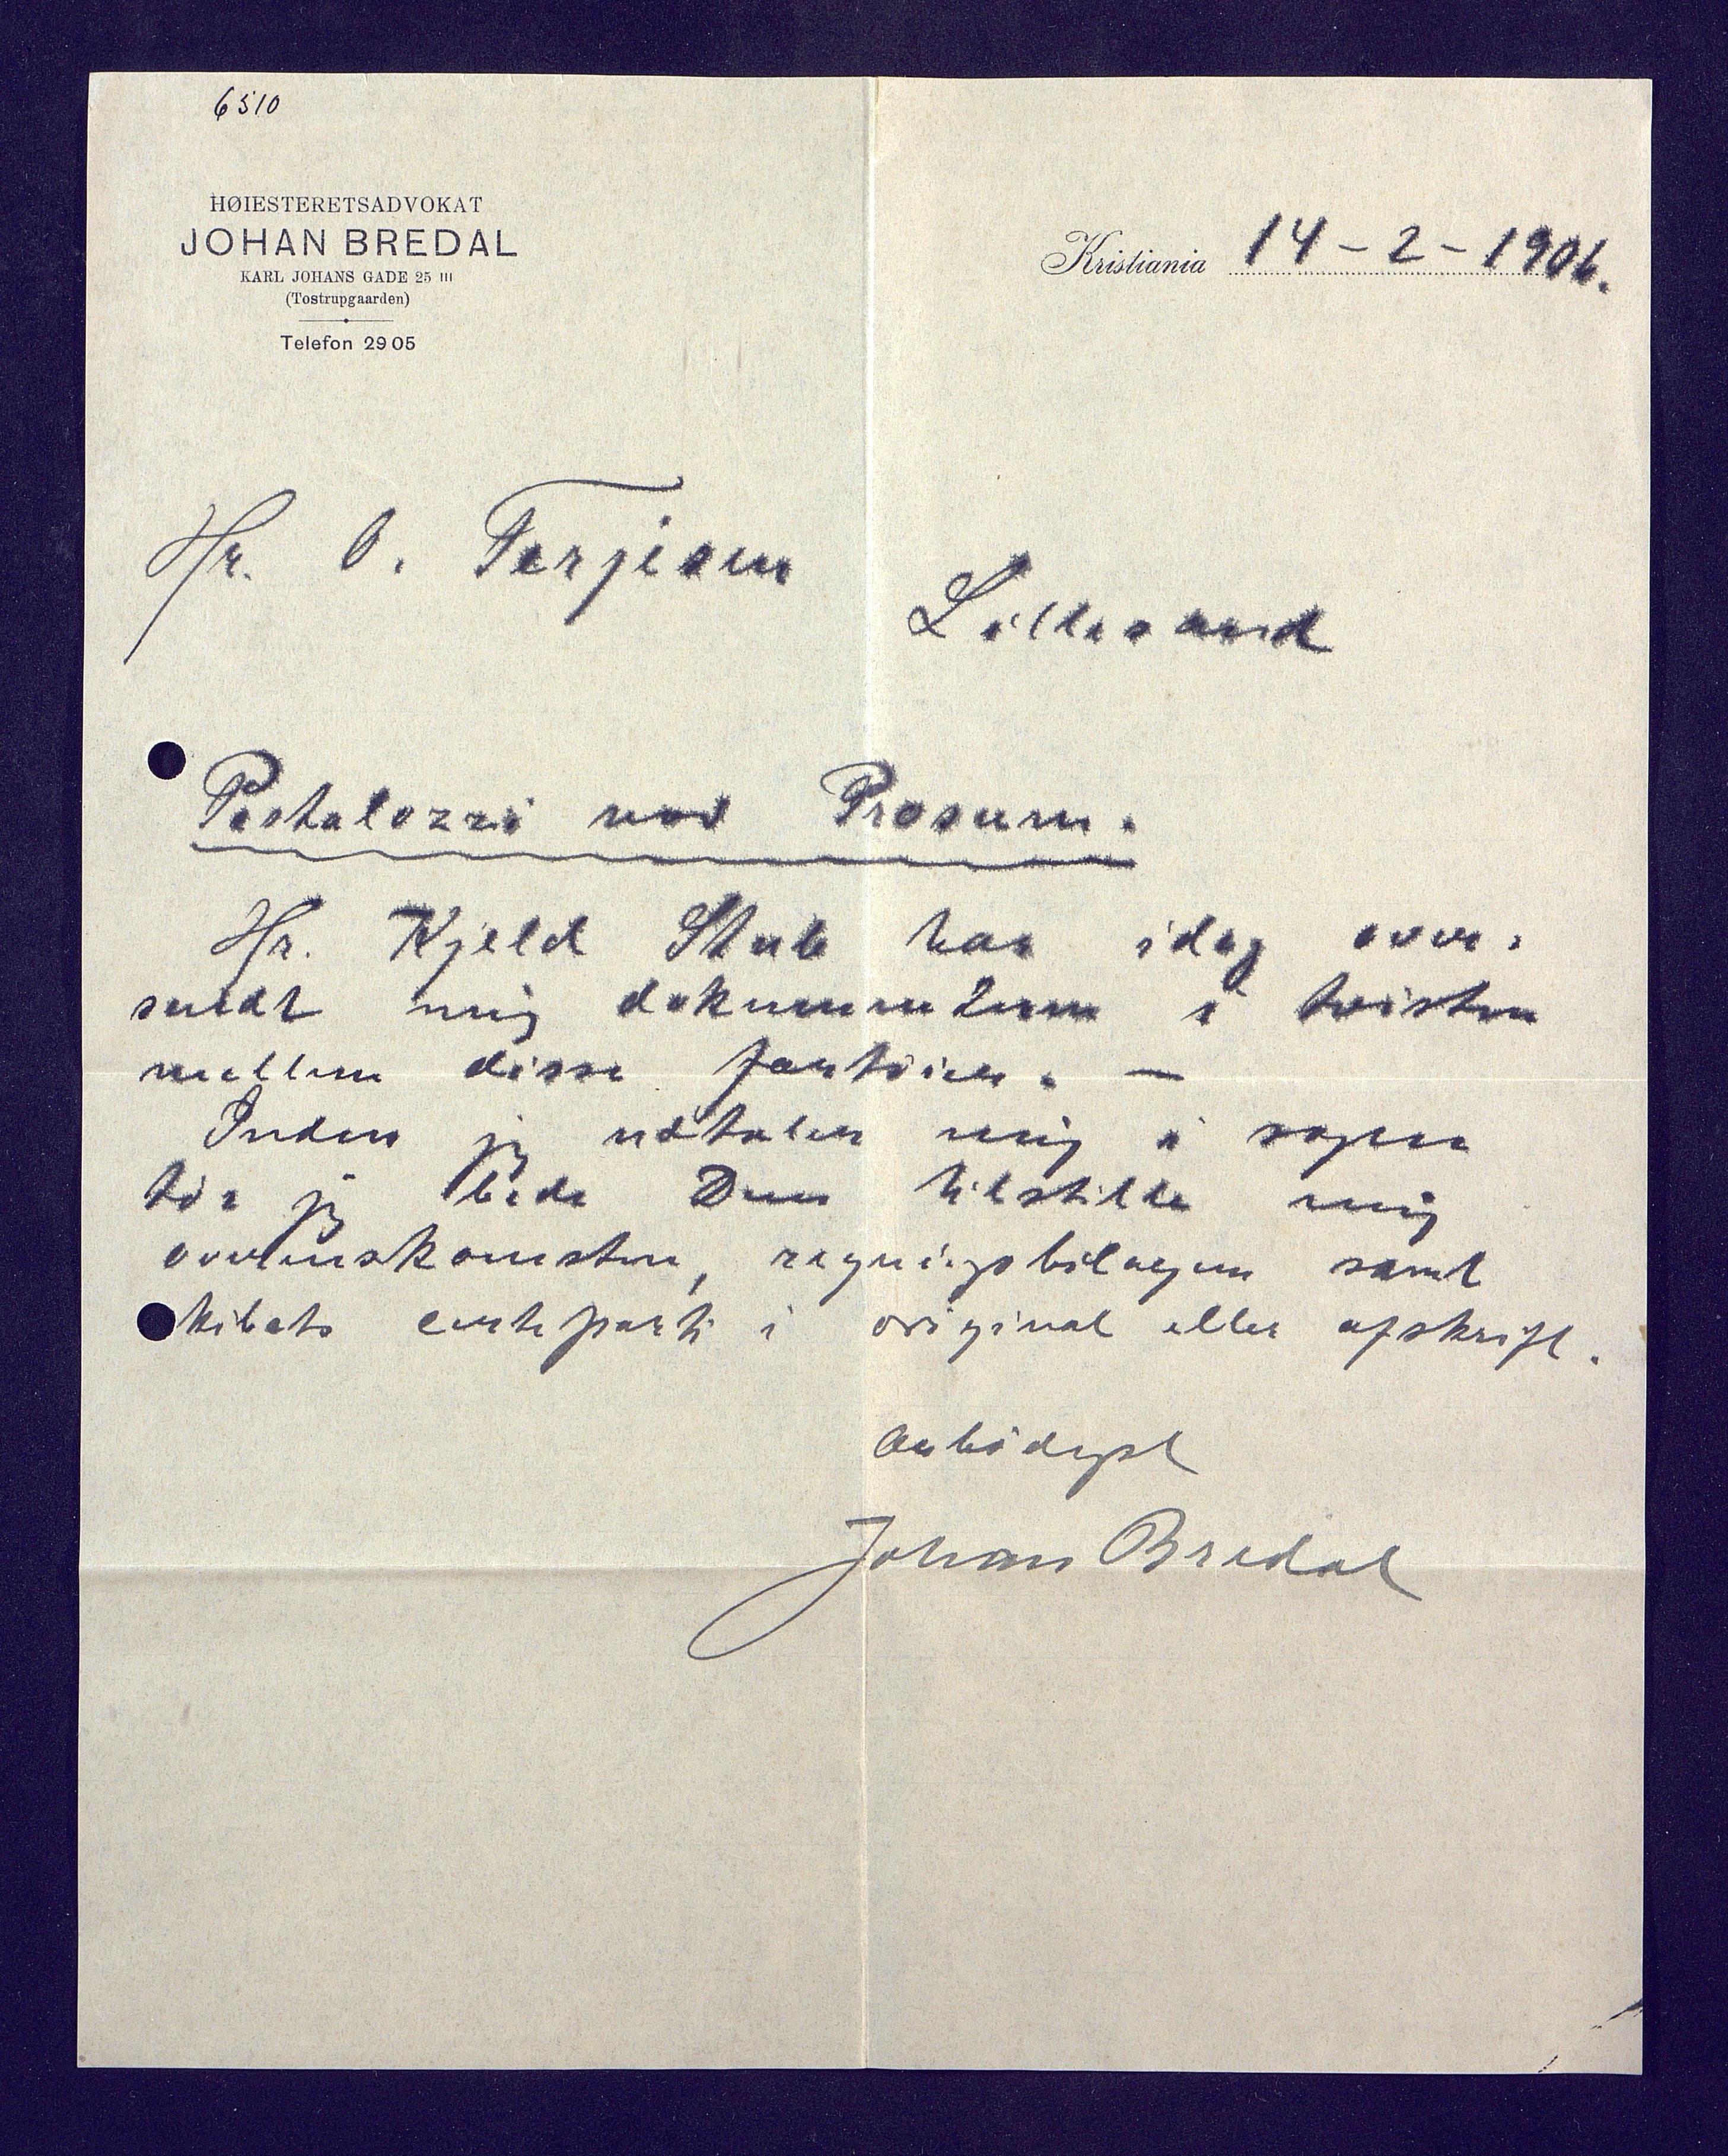 6510
HØIESTERETSADVOKAT
JOHAN BREDAL
KARL JOHANS GADE 25 III
(Tostrupgaarden)
Telefon 2905
Kristiania 14-2-1906.
Hr. O. Terjesen
Lillesand
Pestalozzi mod Prosum.
Hr. Kjeld Stub har idag over-
sendt mig dokumenterne i tvisten
mellem disse fartöier. —
Inden jeg udtaler mig i sagen
tör jeg bede Dem tilstille mig
overenskomsten, regningsbilagene samt
skibets certeparti i original eller afskrift.
Ærbödigst
Johan Bredal